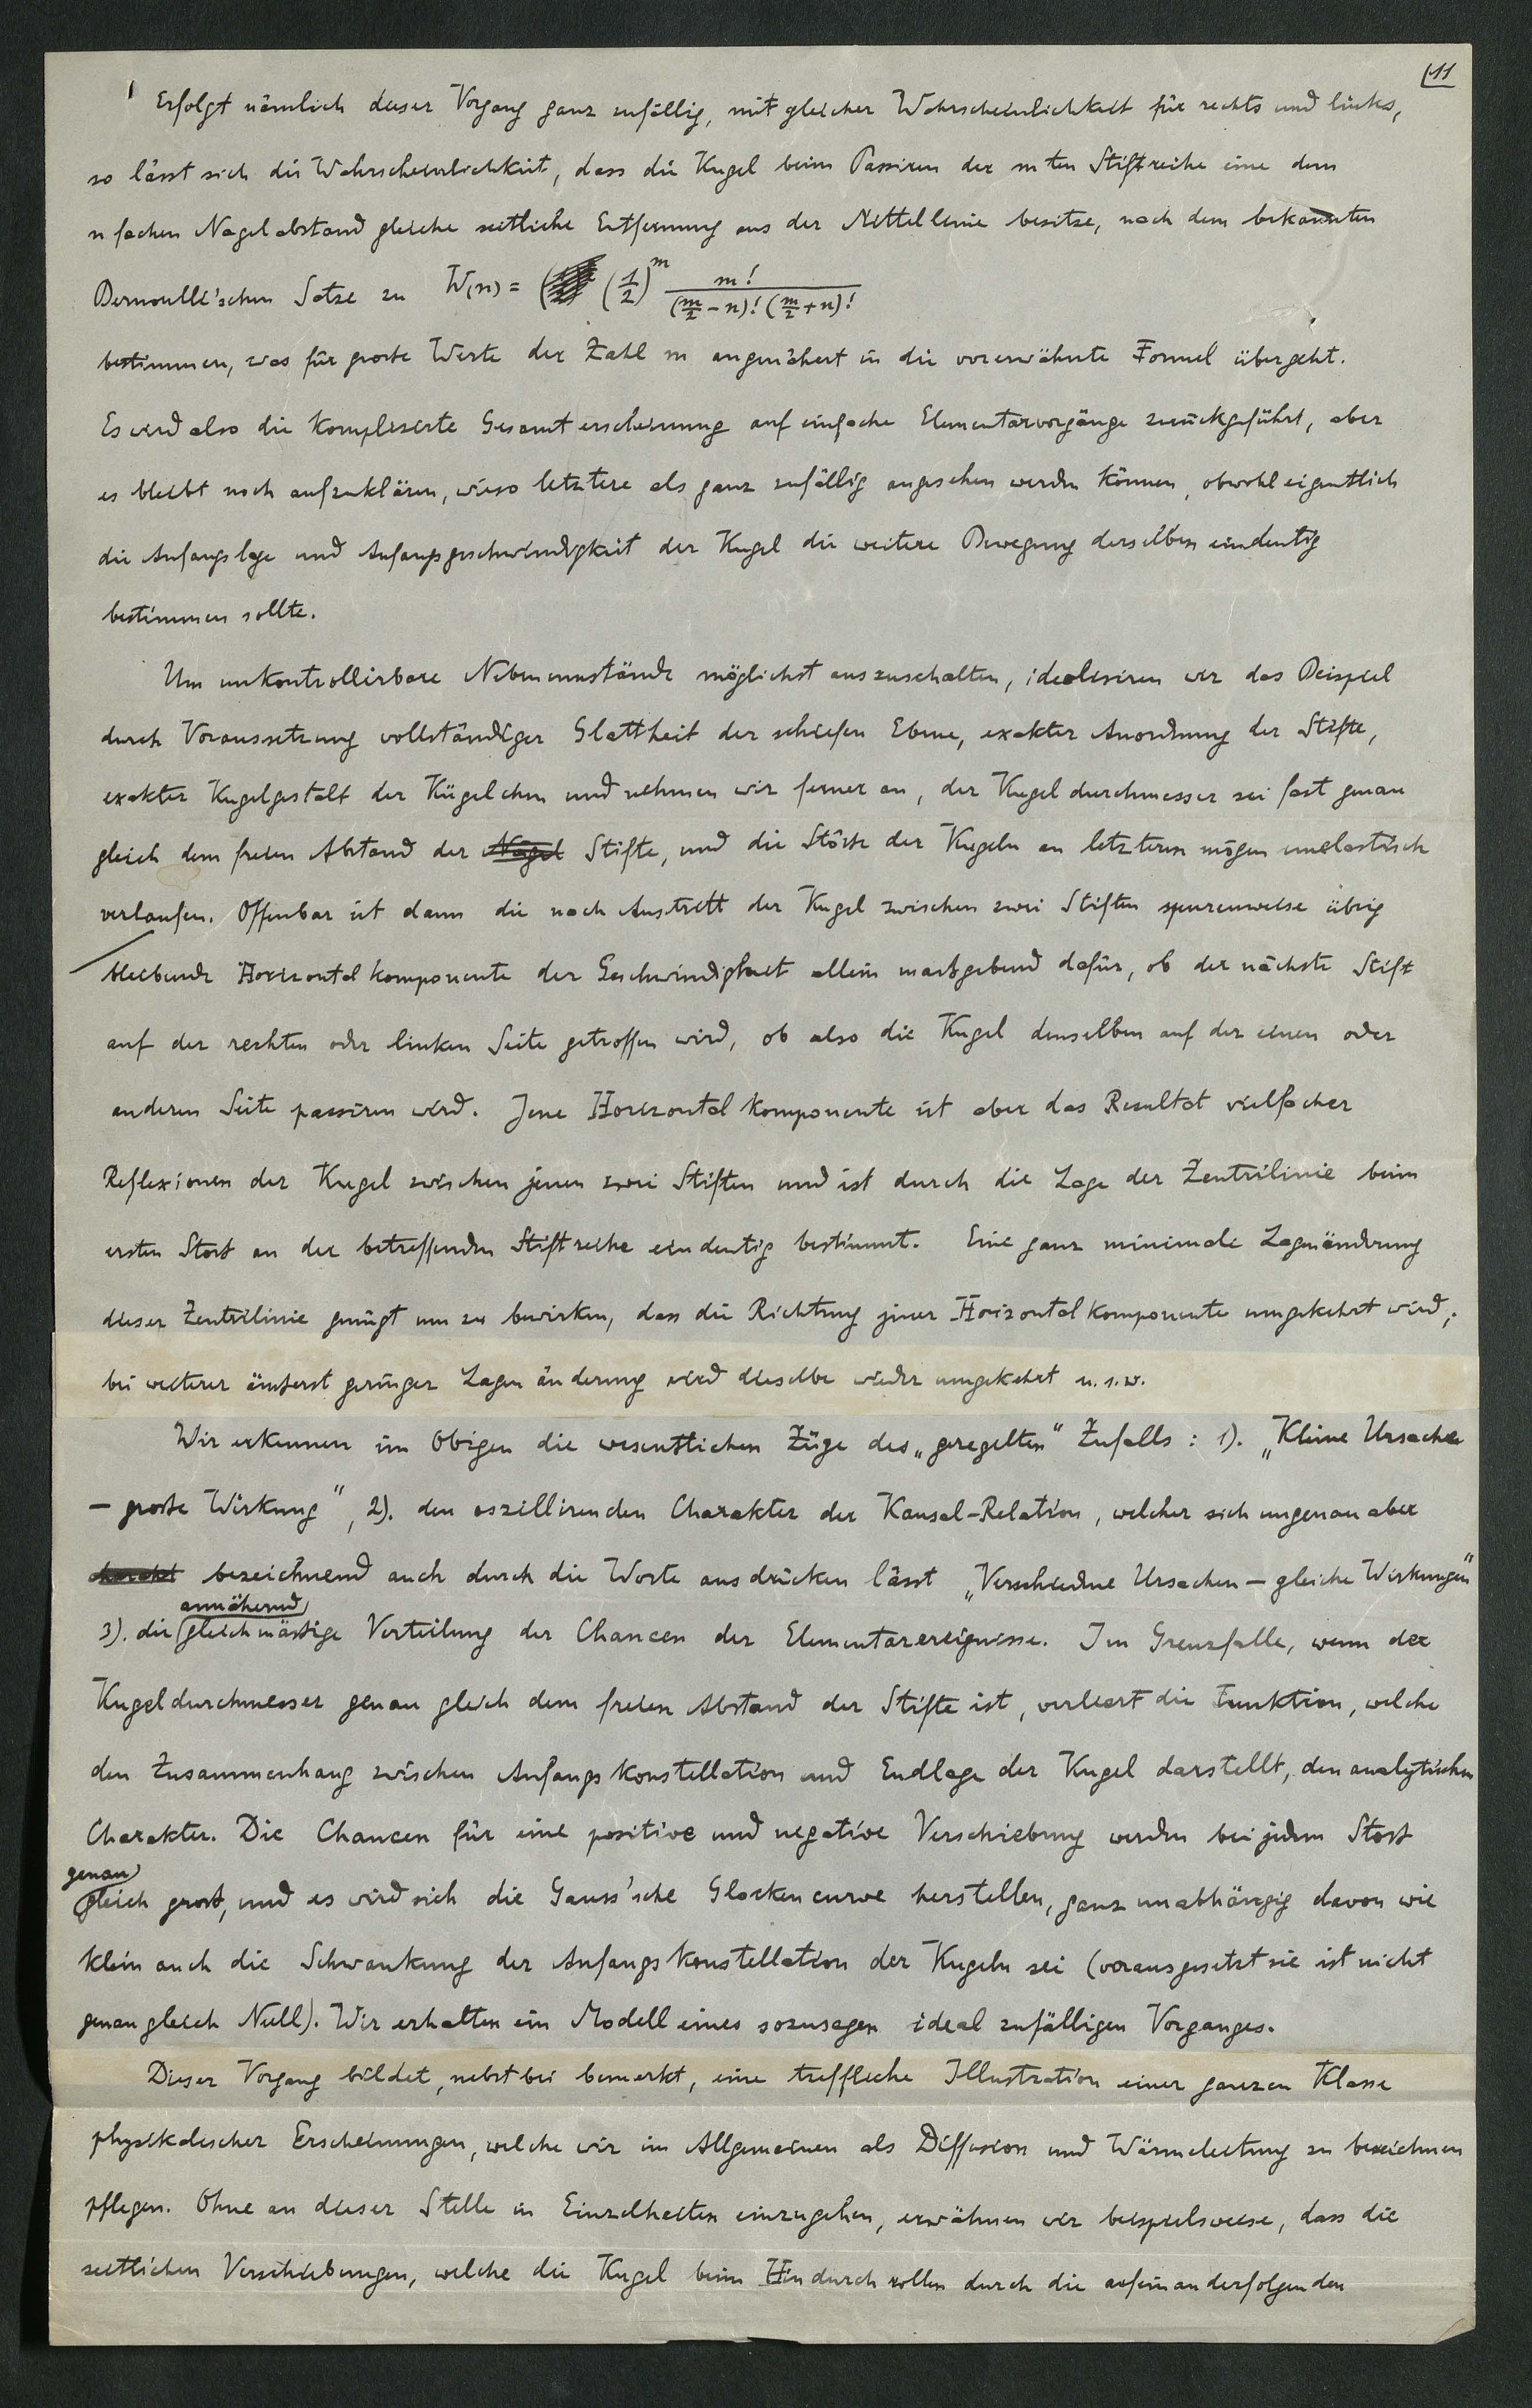 11
Erfolgt nämlich dieser Vorgang ganz zufällig, mit gleicher Wahrscheinlichkeit für rechts und links,
so lässt sich die Wahrscheinlichkeit, dass die Kugel beim Passiren der m ten Stiftreihe eine dem
n fachen Nagelabstand gleiche seitliche Entfernung aus der Mittellinie besitze, nach dem bekannten
Bernoulli'schen Satze zu W(n) = (1/2)^m m! / (m/2 - n)! (m/2 + n)!
bestimmen, was für grosse Werte der Zahl m angenähert in die vorerwähnte Formel übergeht.
Es wird also die komplizierte Gesamterscheinung auf einfache Elementarvorgänge zurückgeführt, aber
es bleibt noch aufzuklären, wieso letztere als ganz zufällig angesehen werden können, obwohl eigentlich
die Anfangslage und Anfangsgeschwindigkeit der Kugel die weitere Bewegung derselben eindeutig
bestimmen sollte.
Um unkontrollirbare Nebenumstände möglichst auszuschalten, idealisiren wir das Beispiel
durch Voraussetzung vollständiger Glattheit der schiefen Ebene, exakter Anordnung der Stifte,
exakter Kugelgestalt der Kügelchen und nehmen wir ferner an, der Kugeldurchmesser sei fast genau
gleich dem freien Abstand der Nägel Stifte, und die Stösse der Kugeln an letzteren mögen unelastisch
verlaufen. Offenbar ist dann die nach Austritt der Kugel zwischen zwei Stiften spurenweise übrig
bleibende Horizontalkomponente der Geschwindigkeit allein massgebend dafür, ob der nächste Stift
auf der rechten oder linken Seite getroffen wird, ob also die Kugel denselben auf der einen oder
anderen Seite passiren wird. Jene Horizontalkomponente ist aber das Resultat vielfacher
Reflexionen der Kugel zwischen jenen zwei Stiften und ist durch die Lage der Zentrilinie beim
ersten Stoss an der betreffenden Stiftreihe eindeutig bestimmt. Eine ganz minimale Lagenänderung
dieser Zentrilinie genügt um zu bewirken, dass die Richtung jener Horizontalkomponente umgekehrt wird;
bei weiterer äusserst geringer Lagenänderung wird dieselbe wieder umgekehrt u.s.w.
Wir erkennen im Obigen die wesentlichen Züge des „geregelten" Zufalls: 1). „Kleine Ursache
— grosse Wirkung", 2). den oszillirenden Charakter der Kausal-Relation, welcher sich ungenau aber
bezeichnend auch durch die Worte ausdrücken lässt „Verschiedne Ursachen — gleiche Wirkungen"
annähernd
3). die gleichmässige Verteilung der Chancen der Elementarereignisse. Im Grenzfalle, wenn der
Kugeldurchmesser genau gleich dem freien Abstand der Stifte ist, verliert die Funktion, welche
den Zusammenhang zwischen Anfangskonstellation und Endlage der Kugel darstellt, den analytischen
Charakter. Die Chancen für eine positive und negative Verschiebung werden bei jedem Stoss
genau
gleich gross, und es wird sich die Gauss'sche Glockencurve herstellen, ganz unabhängig davon wie
klein auch die Schwankung der Anfangskonstellation der Kugeln sei (vorausgesetzt sie ist nicht
genau gleich Null). Wir erhalten ein Modell eines sozusagen ideal zufälligen Vorganges.
Dieser Vorgang bildet, nebstbei bemerkt, eine treffliche Illustration einer ganzen Klasse
physikalischer Erscheinungen, welche wir im Allgemeinen als Diffusion und Wärmeleitung zu bezeichnen
pflegen. Ohne an dieser Stelle in Einzelheiten einzugehen, erwähnen wir beispielsweise, dass die
seitlichen Verschiebungen, welche die Kugel beim Hindurchrollen durch die aufeinanderfolgenden